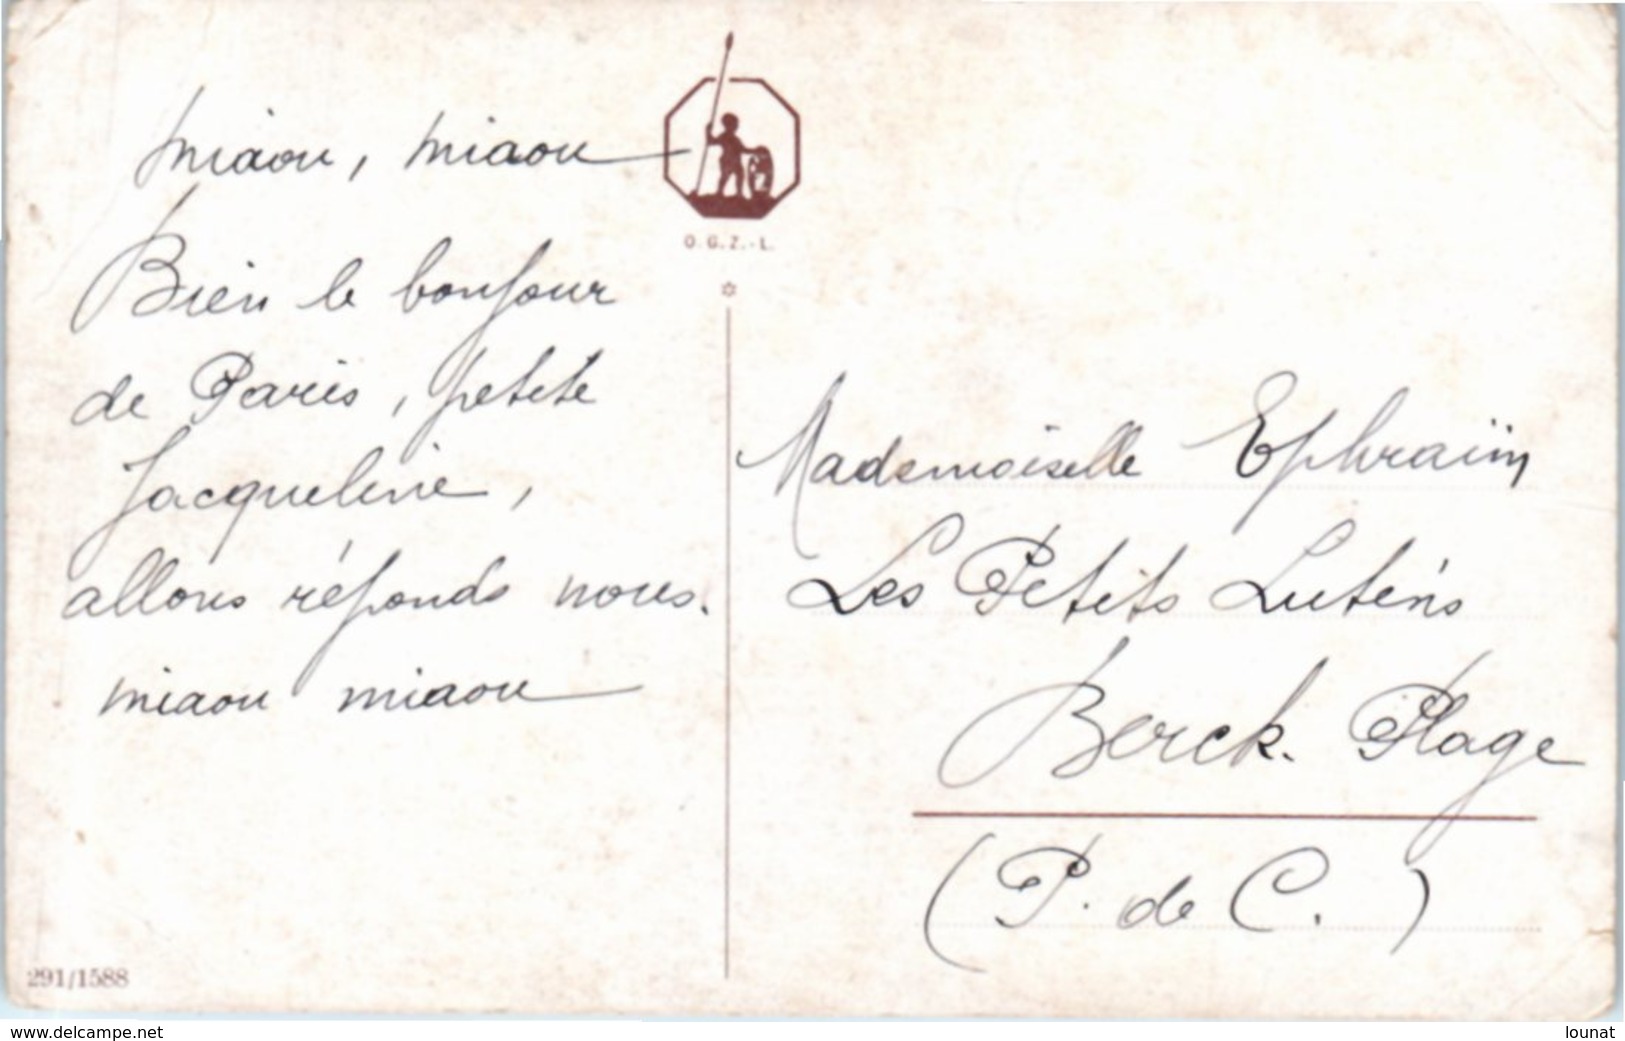 miaou, miaou
Bien le bonjour
de Paris, petite
Jacqueline,
allons réponds nous.
miaou miaou
O.G.Z.-L.
Mademoiselle Ephraïm
Les Petits Lutins
Berck. Plage
(P. de C.)
291/1588
www.delcampe.net
lounat